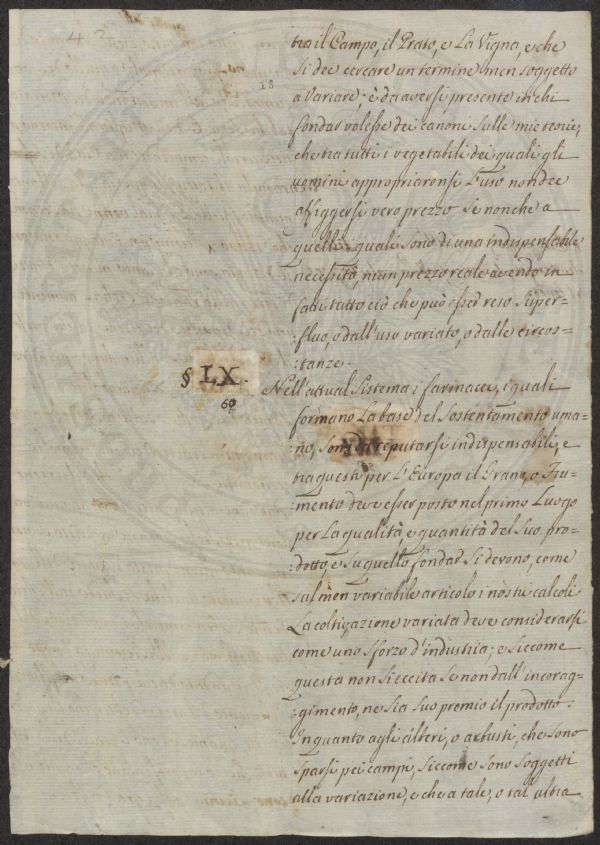 42
18
tra il Campo, il Prato, e La Vigna, e che
si dee cercare un termine men soggetto
a variare; è da aversi presente in chi
fondar volesse dei canoni sulle mie teorie,
che tra tutti i vegetabili dei quali gli
uomini appropriaronsi l'uso non dee
affiggersi vero prezzo se non che a
quelli, i quali sono di una indispensabile
necessità, niun prezzo reale avendo in
fatti tutto ciò che può essed reso super-
:fluo, o dall'uso variato, o dalle circos-
:tanze.
§. LX.
60
Nell'attual Sistema i farinacei, i quali
formano La base del Sostentamento uma-
no, sono da reputarsi indispensabili, e
tra questi per L'Europa il Grano, o Fru-
:mento deve esser posto nel primo Luogo
per La qualità, e quantità del suo pro-
:dotto, e su quello fondar si devono, come
sul men variabile articolo i nostri calcoli.
La coltivazione variata deve considerarsi
come uno sforzo d'industria; e siccome
questa non si eccita se non dall'incorag-
:gimento, ne sia suo premio il prodotto.
In quanto agli alberi, o arbusti, che sono
sparsi pei campi, siccome sono soggetti
alla variazione, e che a tale, o tal'altra